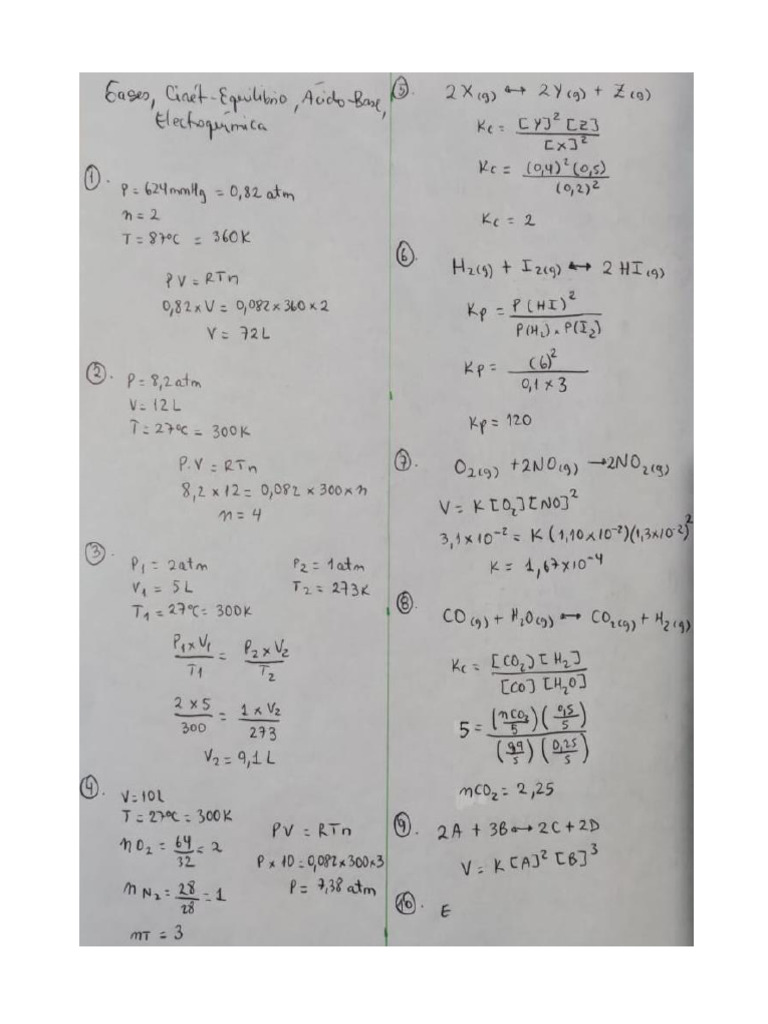 Gases, Cinét-Equilíbrio, Ácido-Base,
Electroquímica
1.
P = 624 mmHg = 0,82 atm
n = 2
T = 87ºC = 360K
PV = RTn
0,82 x V = 0,082 x 360 x 2
V = 72 L
2.
P = 8,2 atm
V = 12 L
T = 27ºC = 300K
P.V = RTn
8,2 x 12 = 0,082 x 300 x n
n = 4
3.
P1 = 2 atm P2 = 1 atm
V1 = 5 L T2 = 273K
T1 = 27ºC = 300K
P1 x V1 / T1 = P2 x V2 / T2
2 x 5 / 300 = 1 x V2 / 273
V2 = 9,1 L
4.
V = 10L
T = 27ºC = 300K
nO2 = 64/32 = 2
nN2 = 28/28 = 1
nT = 3
PV = RTn
P x 10 = 0,082 x 300 x 3
P = 7,38 atm
5.
2X(g) ↔ 2Y(g) + Z(g)
Kc = [Y]² [Z] / [X]²
Kc = (0,4)² (0,5) / (0,2)²
Kc = 2
6.
H2(g) + I2(g) ↔ 2HI(g)
Kp = P(HI)² / P(H2) . P(I2)
Kp = (6)² / 0,1 x 3
Kp = 120
7.
O2(g) + 2NO(g) → 2NO2(g)
V = K[O2][NO]²
3,1x10⁻² = K (1,10x10⁻²)(1,3x10⁻²)²
K = 1,67x10⁻⁴
8.
CO(g) + H2O(g) ↔ CO2(g) + H2(g)
Kc = [CO2][H2] / [CO][H2O]
5 = (nCO2/5)(0,5/5) / (0,9/5)(0,25/5)
nCO2 = 2,25
9.
2A + 3B ↔ 2C + 2D
V = K[A]² [B]³
10.
E